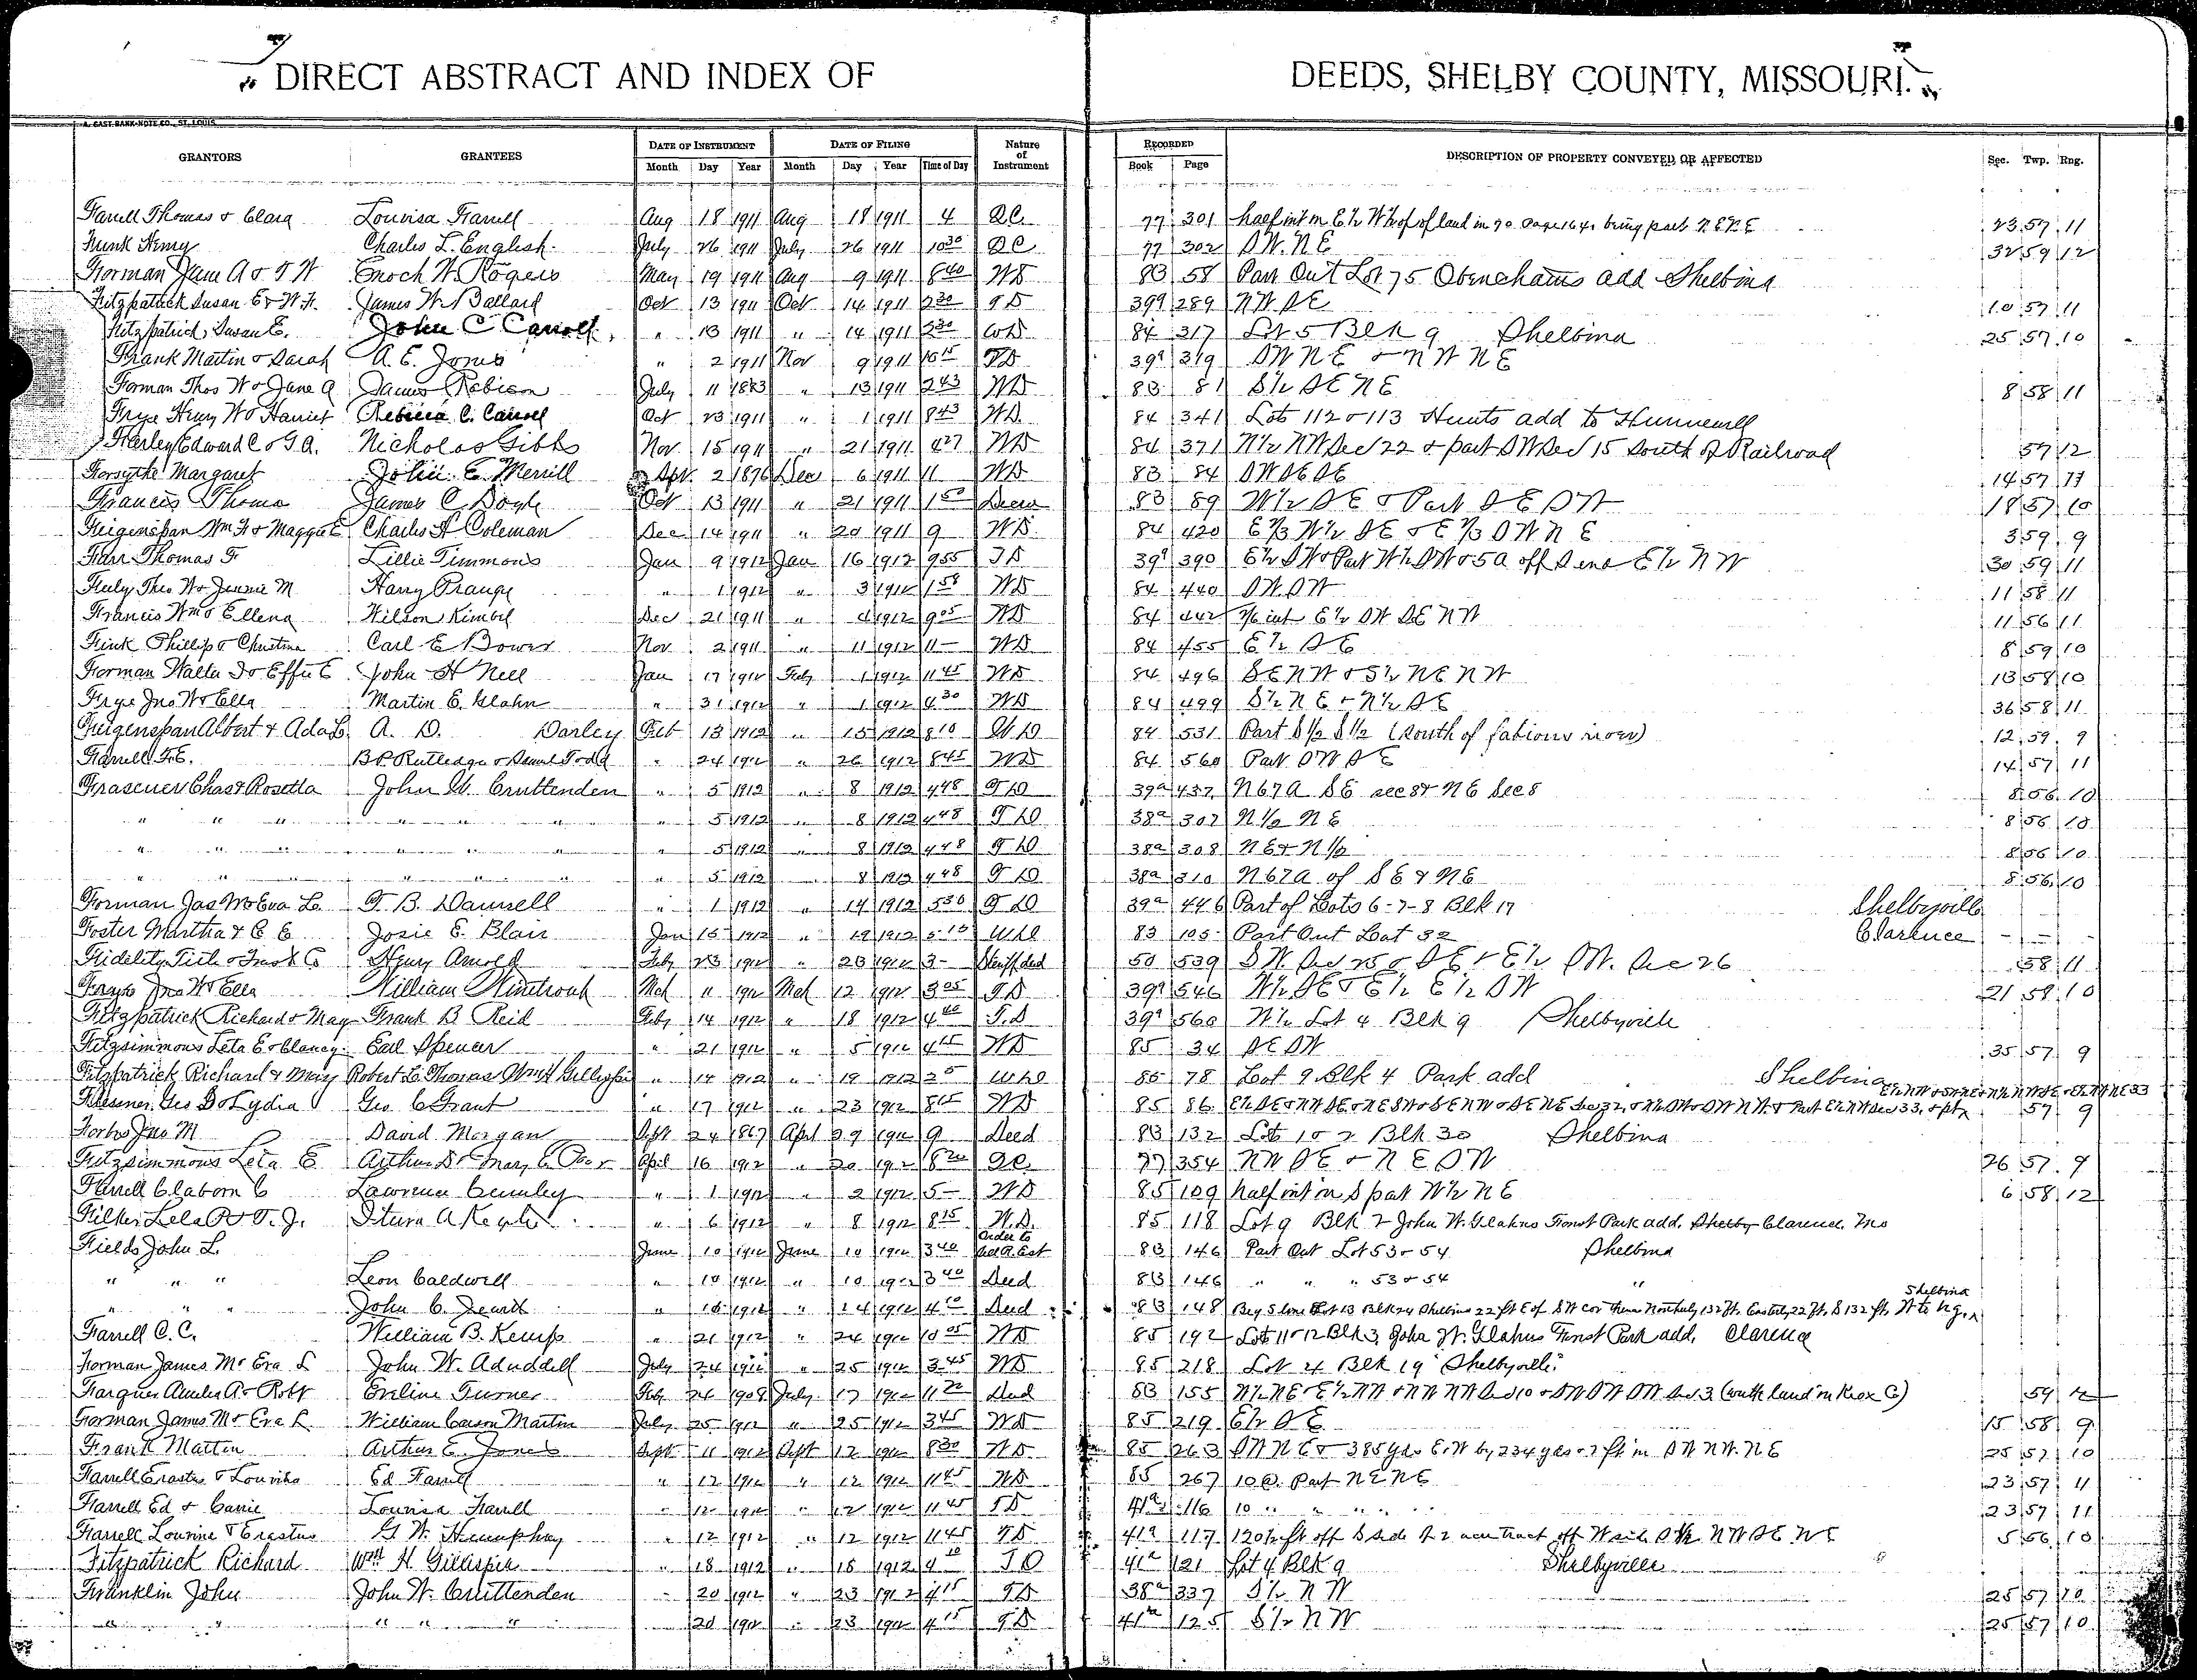 DIRECT ABSTRACT AND INDEX OF DEEDS, SHELBY COUNTY, MISSOURI.
A. GAST BANK-NOTE CO., ST. LOUIS
GRANTORS GRANTEES DATE OF INSTRUMENT DATE OF FILING Nature of Instrument RECORDED DESCRIPTION OF PROPERTY CONVEYED OR AFFECTED Sec. Twp. Rng.
Month Day Year Month Day Year Time of Day Book Page
Farrell Thomas & Clara Louvisa Farrell Aug 18 1911 Aug 18 1911 4 QC. 77 301 half int in E½ W½ of land in 70 Page 164, being part NENE 23 57 11
Funk Henry Charles L. English July 26 1911 July 26 1911 10 30 QC 77 302 SW.NE 32 59 12
Forman Jane A & T W Enoch W. Rogers May 19 1911 Aug 9 1911 8 40 WD 83 58 Part Out Lot 75 Obenchains add Shelbina
Fitzpatrick Susan E & W.H. James W. Ballard Oct 13 1911 Oct 14 1911 2 30 TD 39a 289 NW SE 10 57 11
Fitzpatrick, Susan E. John C Carroll " 13 1911 " 14 1911 2 30 WD 84 317 Lot 5 Blk 9 Shelbina 25 57 10
Frank Martin & Sarah A. E. Jones " 2 1911 Nov 9 1911 10 15 TD 39a 319 SW NE & NW NE
Forman Thos W & Jane A James Robison July 11 1883 " 13 1911 2 43 WD 83 81 S½ SE NE 8 58 11
Frye Henry W & Harriet Rebecca C. Carroll Oct 23 1911 " 1 1911 8 43 WD 84 341 Lots 112 & 113 Hunts add to Hunnewell
Farley Edward C & G.A. Nicholas Gibbs Nov 15 1911 " 21 1911 4 27 WD 84 371 N½ NW Sec 22 & part SW Sec 15 South of Railroad 57 12
Forsythe Margaret John E. Merrill Apr. 2 1876 Dec 6 1911 11 WD 83 84 SW SE SE 14 57 11
Francis Thoma James C Doyle Oct 13 1911 " 21 1911 1 50 83 89 W½ SE & Part SE SW 18 57 10
Feigenspan Wm H & Maggie E Charles A Coleman Dec 14 1911 " 20 1911 9 WD 84 420 E⅓ W½ SE & E⅓ SW NE 3 59 9
Farr Thomas F Lillie Timmons Jan 9 1912 Jan 16 1912 9 55 TD 39a 390 E½ SW & Part W½ SW & 5a off S end E½ NW 30 59 11
Fuly Theo W & Jennie M Harry Prange " 1 1912 " 3 1912 1 58 WD 84 440 SW SW 11 58 11
Francis Wm & Ellena Wilson Kimbel Dec 21 1911 " 4 1912 9 05 WD 84 442 int E½ SW SE NW 11 56 11
Fink Phillip & Christina Carl E Bower Nov 2 1911 " 11 1912 11 WD 84 455 E½ SE 8 59 10
Forman Walter D & Effie E John H Nell Jan 17 1912 Feby 1 1912 11 45 WD 84 496 SE NW & S½ NE NW 13 58 10
Frye Jno W & Ella Martin E. Glahn " 31 1912 " 1 1912 4 30 WD 84 499 S½ NE & N½ SE 36 58 11
Feigenspan Albert & Ada L. A. D. Darley Feb 13 1912 " 15 1912 8 10 WD 84 531 Part S½ S½ (South of fabious river) 12 59 9
Farrell F.E. B.P. Rutledge & Todd " 24 1912 " 26 1912 8 45 WD 84 560 Part SW SE 14 57 11
Frascuer Chas & Rosetta John W. Cruttenden " 5 1912 " 8 1912 4 48 TD 39a 437 N67A SE sec 8 & NE Sec 8 8 56 10
" " " " " " " 5 1912 " 8 1912 4 48 TD 38a 307 N½ NE 8 56 10
" " " " " " " 5 1912 " 8 1912 4 48 TD 38a 308 NE & N½ 8 56 10
" " " " " " " 5 1912 8 1912 4 48 TD 38a 310 N67A of SE & NE 8 56 10
Forman Jas M & Eva L. F. B. Damrell " 1 1912 " 14 1912 5 30 TD 39a 446 Part of Lots 6-7-8 Blk 17 Shelbyville
Foster Martha & C E Josie E. Blair Jan 15 1912 " 19 1912 5 15 WD 83 105 Part Out Lot 32 Clarence
Fidelity Title & Trust Co Henry Arnold Feby 23 1912 " 23 1912 3 Sheriff ded 50 539 SW. Sec 25 & SE & E½ SW. Sec 26 58 11
Frye Jno W & Ella William Winetroub Mch 11 1912 Mch 12 1912 3 05 TD 39a 546 W½ SE & E½ E½ SW 21 58 10
Fitzpatrick Richard & May Frank B Reid Feby 14 1912 " 18 1912 4 00 T.D 39a 560 W½ Lot 4 Blk 9 Shelbyville
Fitzsimmons Leta E & Clancy Earl Spencer " 21 1912 " 5 1912 4 15 WD 85 34 SE SW 35 57 9
Fitzpatrick Richard & May Robert L. Thomas & Wm H Gillispie " 14 1912 " 19 1912 WD 85 78 Lot 9 Blk 4 Park add Shelbina
Geo D & Lydia Geo C Grant " 17 1912 " 23 1912 WD 85 86 57 9
Forbes Jno M David Morgan Sept 24 1867 April 29 1912 9 Deed 83 132 Lots 1 & 2 Blk 30 Shelbina
Fitzsimmons Leta E Arthur D & Mary C April 16 1912 " 20 1912 8 20 QC. 77 354 NW SE & NE SW 26 57 9
Farrell Claborn C Lawrence Cumley " 1 1912 " 2 1912 5 WD 85 109 half int in S part W½ NE 6 58 12
Filker Lela P & T.J. " 6 1912 " 8 1912 8 15 W.D. 85 118 Lot 9 Blk 2 John W. Glahns Forest Park add. Shelby Clarence, Mo
Fields John L. June 10 1912 June 10 1912 3 40 Order to Sel R. Est 83 146 Part Out Lot 53 & 54 Shelbina
" " " Leon Caldwell " 10 1912 " 10 1912 3 40 Deed 83 146 " " " 53 & 54 "
" " " John C. " 10 1912 " 14 1912 4 10 Deed 83 148 Beg S line Lot 13 Blk 24 Shelbina 22 ft E of SW cor thence Northerly 132 ft. Easterly 22 ft. S 132 ft. W to Beg. Shelbina
Farrell C. C. William B. Kemp " 21 1912 " 24 1912 10 05 WD 85 192 Lots 11 & 12 Blk 3, John W. Glahns Forest Park add. Clarence
Forman James M & Eva L John W. Aduddell July 24 1912 " 25 1912 3 45 WD 85 218 Lot 4 Blk 19 Shelbyville
Farquer Amelia A. & Robt Eveline Turner Feby 24 1908 July 17 1912 11 20 Deed 83 155 W½ NE & E½ NW & NW NW Sec 10 & SW SW SW Sec 3 (with land in Knox Co) 59 12
Forman James M & Eva L William Carson Martin July 25 1912 " 25 1912 3 45 WD 85 219 E½ SE 15 58 9
Frank Martin Arthur E. Jones Sept 11 1912 Sept 12 1912 8 30 WD 85 263 SW NE & 385 yds E.W by 234 yds & 7 ft in SW NW. NE 25 57 10
Farrell Erastus & Louvisa Ed Farrell " 12 1912 " 12 1912 11 45 WD 85 267 10 a. Part NE NE 23 57 11
Farrell Ed & Carrie Louvisa Farrell " 12 1912 " 12 1912 11 45 TD 41a 116 10 " " " " 23 57 11
Farrell Lourine & Erastus G. W. Humphrey " 12 1912 " 12 1912 11 45 TD 41a 117 120½ ft off S side of 2 acre tract off W side S½ NW SE NE 5 56 10
Fitzpatrick Richard Wm H. Gillispie " 18 1912 " 18 1912 4 10 TD 41a 121 Lot 4 Blk 9 Shelbyville
Franklin John John W. Cruttenden " 20 1912 " 23 1912 4 15 TD 38a 337 S½ NW 25 57 10
" " " " " 20 1912 " 23 1912 4 15 TD 41a 125 S½ NW 25 57 10